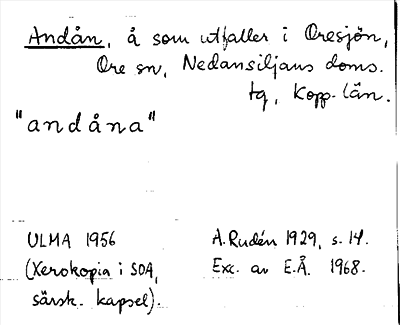 Andån, å som utfaller i Oresjön,
Ore sn, Nedansiljans doms.
tg, Kopp. län.
"andåna"
ULMA 1956
(Xerokopia i SOA,
särsk. kapsel).
A. Rudén 1929, s. 14.
Exc. av E.Å. 1968.